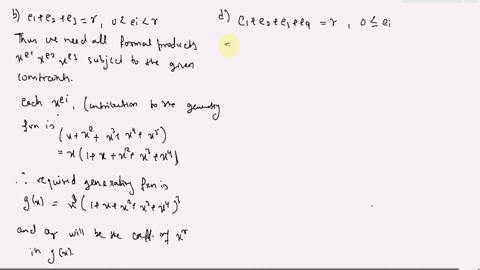 b) e₁+e₂+e₃ = r , 0<ei<r
Thus we need all formal products
x^e₁ x^e₂ x^e₃ subject to the given
constraints.
each x^ei, contribution to the generating
fxn is
(x+x²+x³+x⁴+x⁵)
= x(1+x+x²+x³+x⁴)
∴ required generating fxn is
g(x) = x³(1+x+x²+x³+x⁴)³
and ar will be the coeff. of x^r
in g(x).
d) e₁+e₂+e₃+e₄ = r , 0≤ei